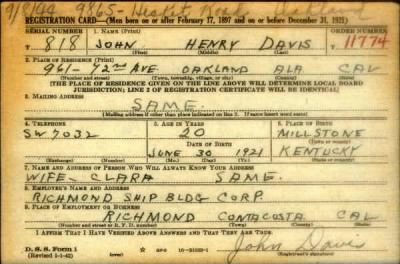 9/8/44 9865-
REGISTRATION CARD—(Men born on or after February 17, 1897 and on or before December 31, 1921)
SERIAL NUMBER 1. NAME (Print) ORDER NUMBER
T 818 JOHN HENRY DAVIS 11774
(First) (Middle) (Last)
2. PLACE OF RESIDENCE (Print)
961-72nd AVE OAKLAND ALA CAL
(Number and street) (Town, township, village, or city) (County) (State)
[THE PLACE OF RESIDENCE GIVEN ON THE LINE ABOVE WILL DETERMINE LOCAL BOARD
JURISDICTION; LINE 2 OF REGISTRATION CERTIFICATE WILL BE IDENTICAL]
3. MAILING ADDRESS
SAME.
[Mailing address if other than place indicated on line 2. If same insert word same]
4. TELEPHONE 5. AGE IN YEARS 6. PLACE OF BIRTH
SW 7032 20 MILLSTONE
DATE OF BIRTH (Town or county)
JUNE 30 1921 KENTUCKY
(Exchange) (Number) (Mo.) (Day) (Yr.) (State or country)
7. NAME AND ADDRESS OF PERSON WHO WILL ALWAYS KNOW YOUR ADDRESS
WIFE- CLARA SAME.
8. EMPLOYER'S NAME AND ADDRESS
RICHMOND SHIP BLDG CORP.
9. PLACE OF EMPLOYMENT OR BUSINESS
RICHMOND CONTACOSTA CAL
(Number and street or R. F. D. number) (Town) (County) (State)
I AFFIRM THAT I HAVE VERIFIED ABOVE ANSWERS AND THAT THEY ARE TRUE.
D. S. S. Form 1
(Revised 5-1-42)
John Davis
(Registrant's signature)